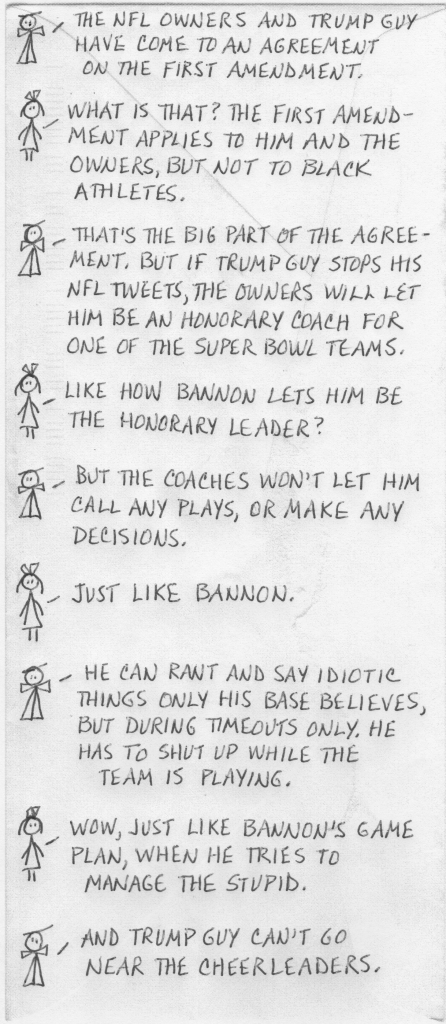 THE NFL OWNERS AND TRUMP GUY
HAVE COME TO AN AGREEMENT
ON THE FIRST AMENDMENT.
WHAT IS THAT? THE FIRST AMEND-
MENT APPLIES TO HIM AND THE
OWNERS, BUT NOT TO BLACK
ATHLETES.
THAT'S THE BIG PART OF THE AGREE-
MENT. BUT IF TRUMP GUY STOPS HIS
NFL TWEETS, THE OWNERS WILL LET
HIM BE AN HONORARY COACH FOR
ONE OF THE SUPER BOWL TEAMS.
LIKE HOW BANNON LETS HIM BE
THE HONORARY LEADER?
BUT THE COACHES WON'T LET HIM
CALL ANY PLAYS, OR MAKE ANY
DECISIONS.
JUST LIKE BANNON.
HE CAN RANT AND SAY IDIOTIC
THINGS ONLY HIS BASE BELIEVES,
BUT DURING TIMEOUTS ONLY. HE
HAS TO SHUT UP WHILE THE
TEAM IS PLAYING.
WOW, JUST LIKE BANNON'S GAME
PLAN, WHEN HE TRIES TO
MANAGE THE STUPID.
AND TRUMP GUY CAN'T GO
NEAR THE CHEERLEADERS.